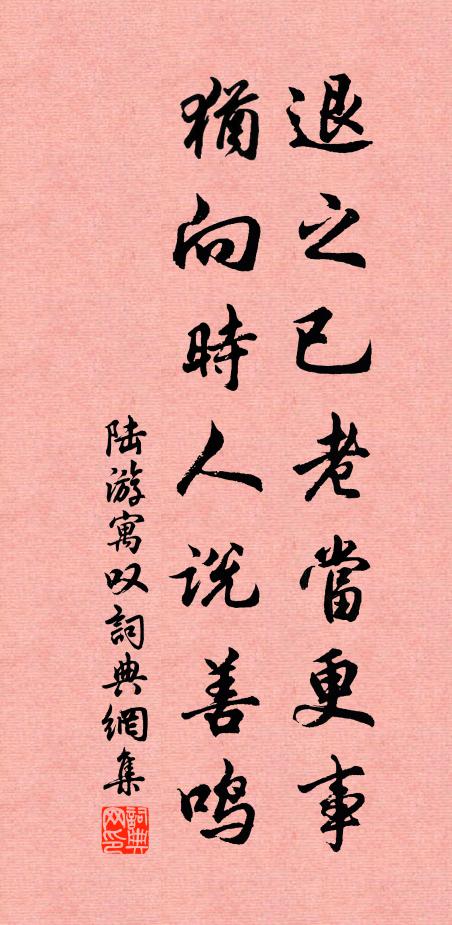 退之已老當更事
猶向時人说善鳴
陸游寓叹詞典網集
詞典网印